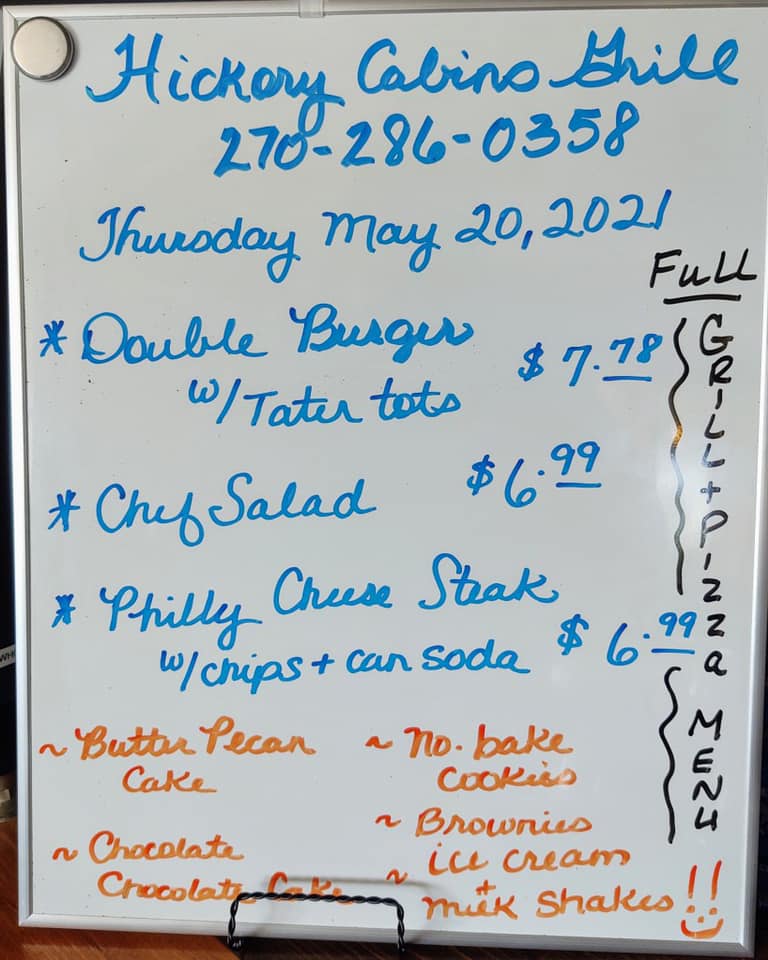 Hickory Cabins Grill
270-286-0358
Thursday May 20, 2021
* Double Burger $7.78
w/Tater tots
* Chef Salad $6.99
* Philly Cheese Steak
w/chips + can soda $6.99
~ Butter Pecan
Cake
~ Chocolate
Chocolate Cake
~ No. bake
Cookies
~ Brownies
~ ice cream
+
milk shakes
Full
GRILL + PIZZa MENU !!